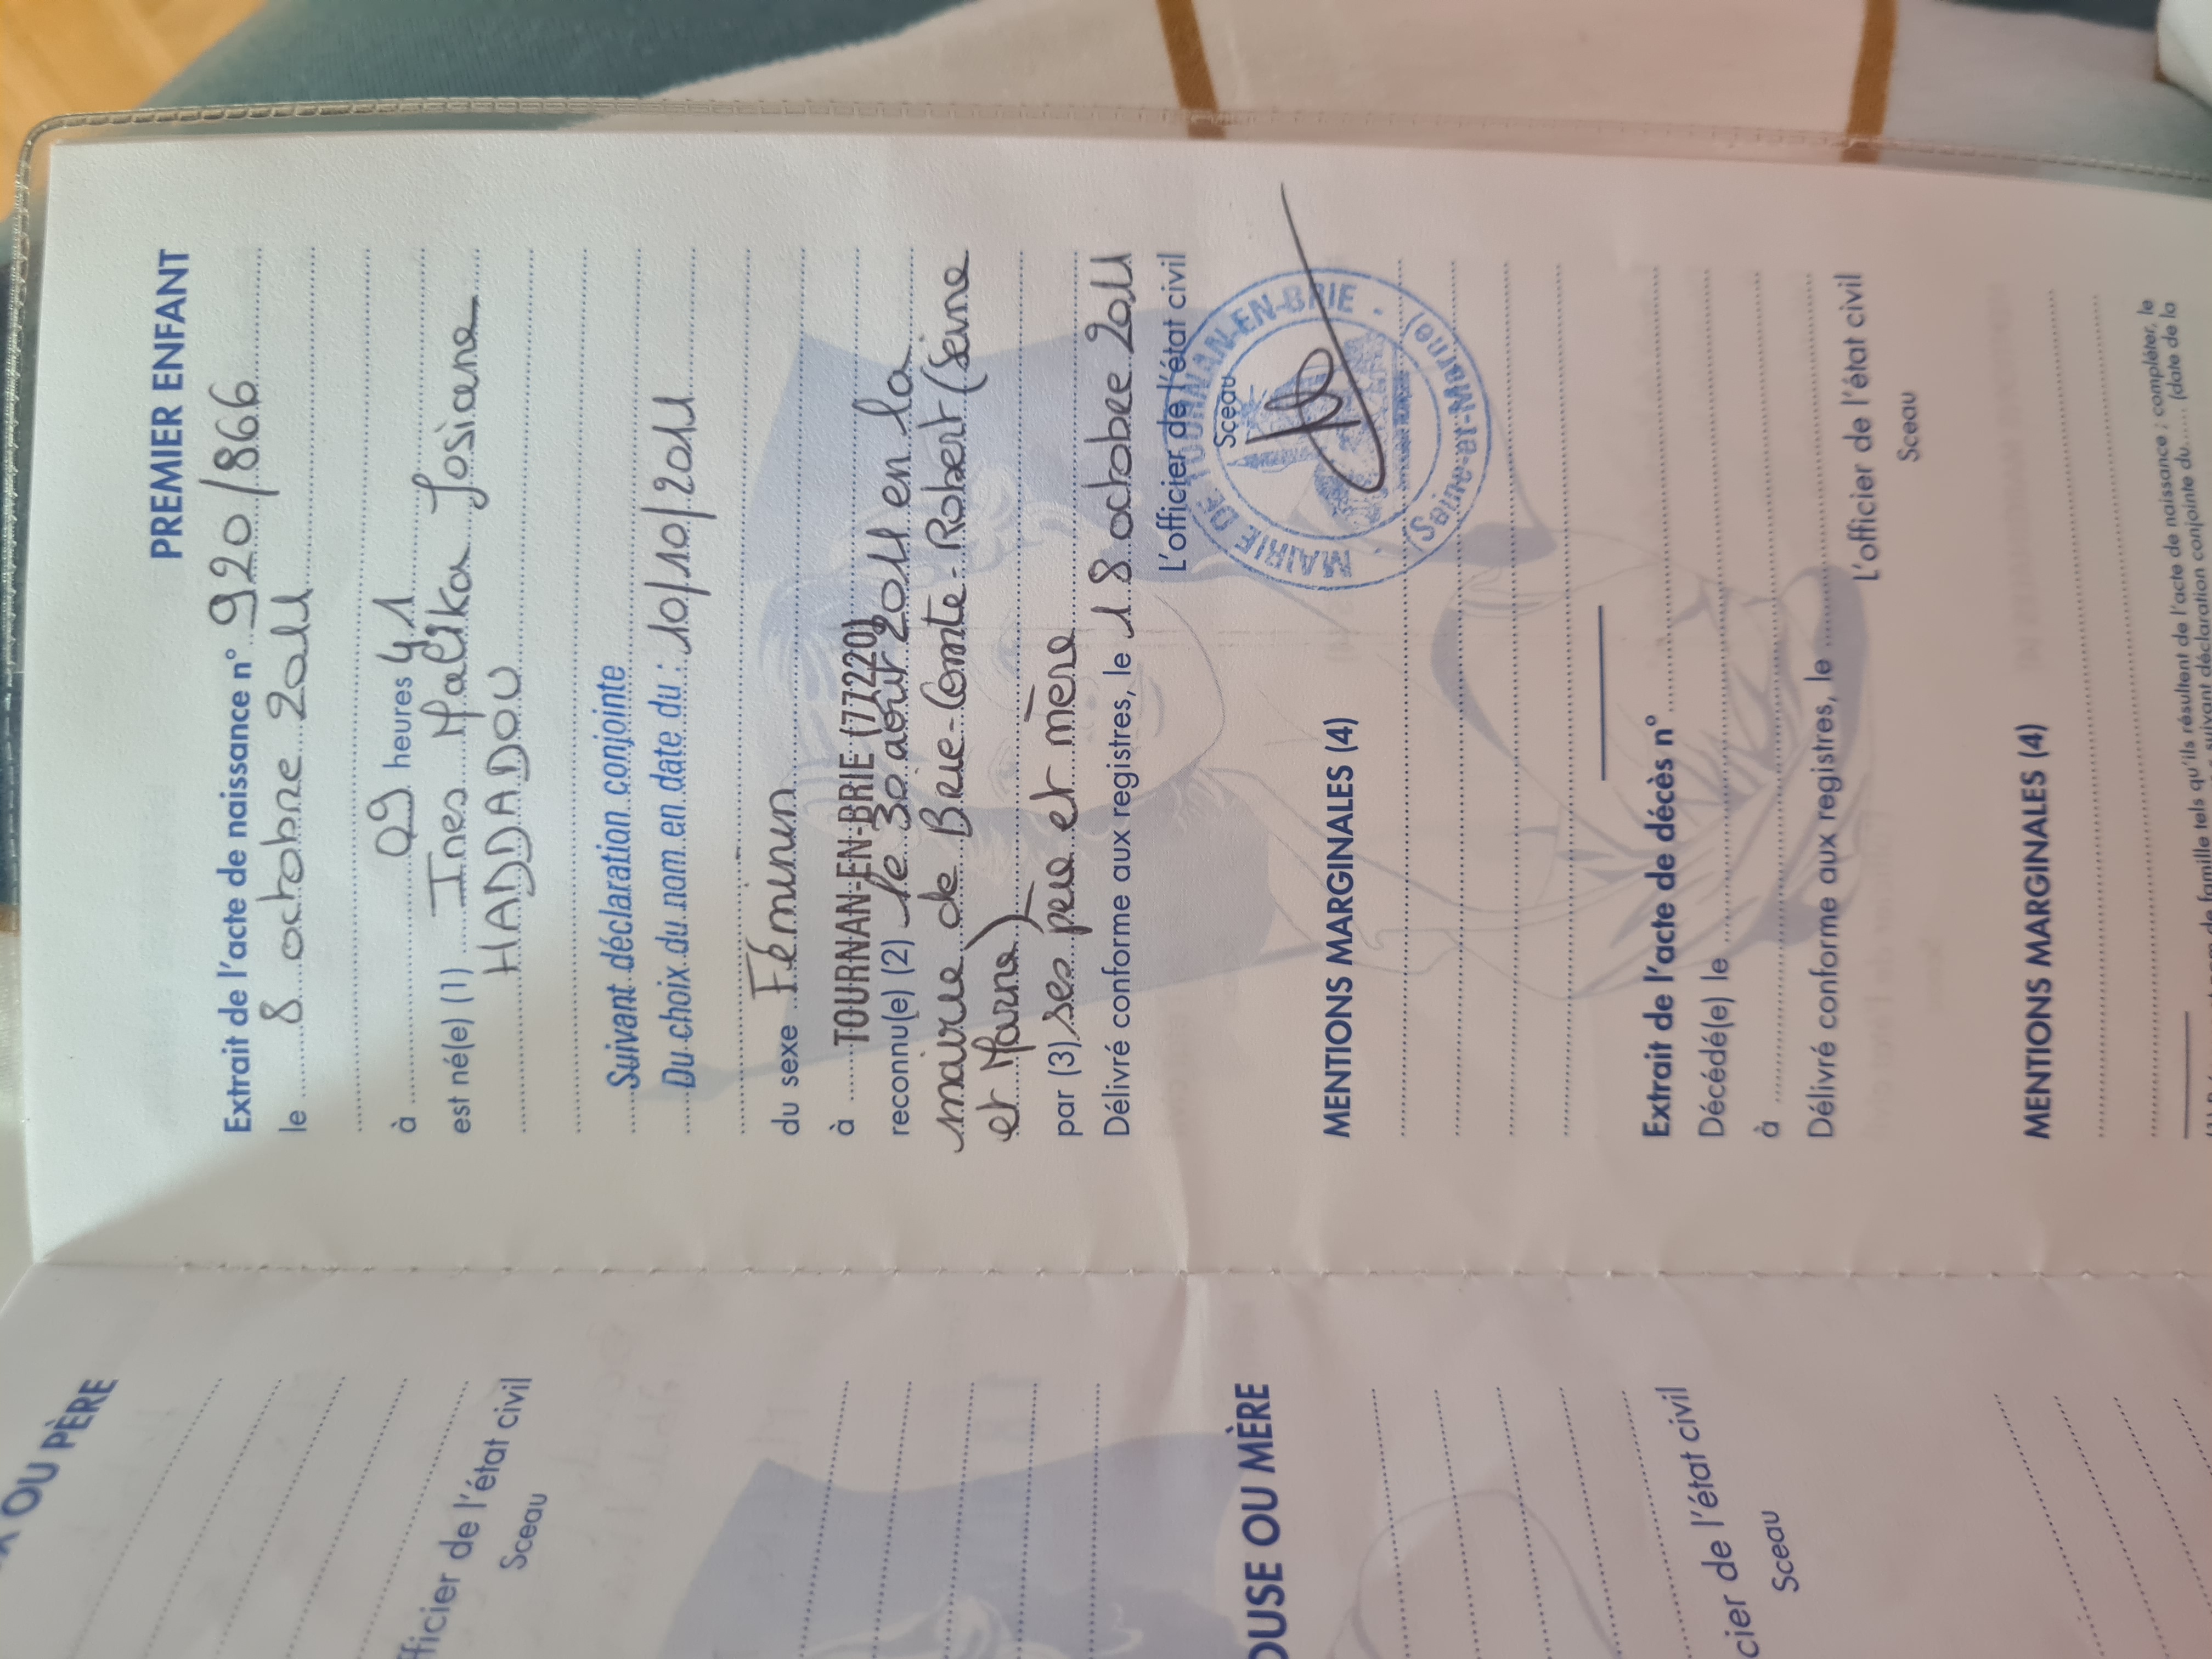 PREMIER ENFANT
Extrait de l'acte de naissance n° 920/866
le 8 octobre 2011
à 09 heures 41
est né(e) (1) Ines Malika Josiane
HADDADOU
Suivant déclaration conjointe
Du choix du nom en date du : 10/10/2011
du sexe Féminin
à TOURNAN-EN-BRIE (77220)
reconnu(e) (2) le 30 août 2011 en la
mairie de Brie-Comte-Robert (Seine
et Marne)
par (3) ses père et mère
Délivré conforme aux registres, le 18 octobre 2011
L'officier de l'état civil
Sceau
MAIRIE DE TOURNAN-EN-BRIE
(Seine-et-Marne)
MENTIONS MARGINALES (4)
Extrait de l'acte de décès n°
Décédé(e) le
à
Délivré conforme aux registres, le
L'officier de l'état civil
Sceau
MENTIONS MARGINALES (4)
de famille tels qu'ils résultent de l'acte de naissance ; compléter, le
suivant déclaration conjointe du (date de la
OU PÈRE
fficier de l'état civil
Sceau
OUSE OU MÈRE
cier de l'état civil
Sceau